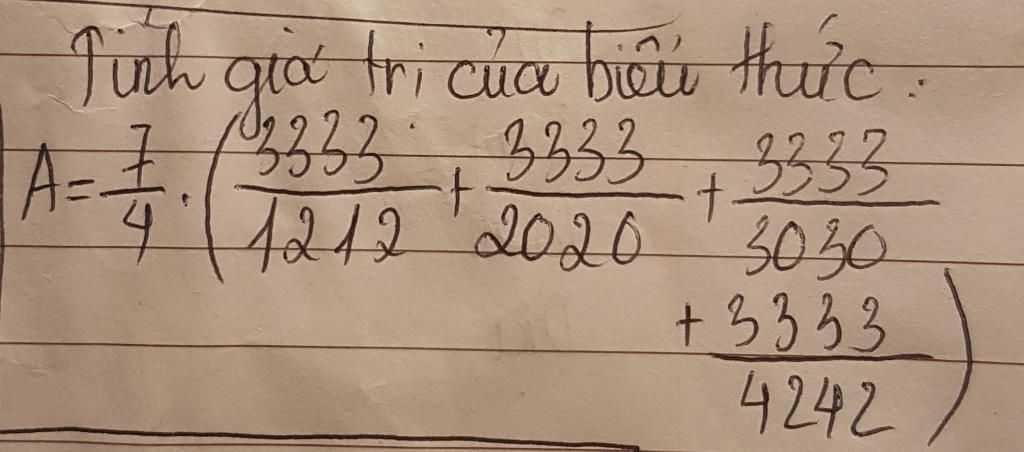 Tính giá trị của biểu thức:
A = 7/4 . (3333/1212 + 3333/2020 + 3333/3030
+ 3333/4242)